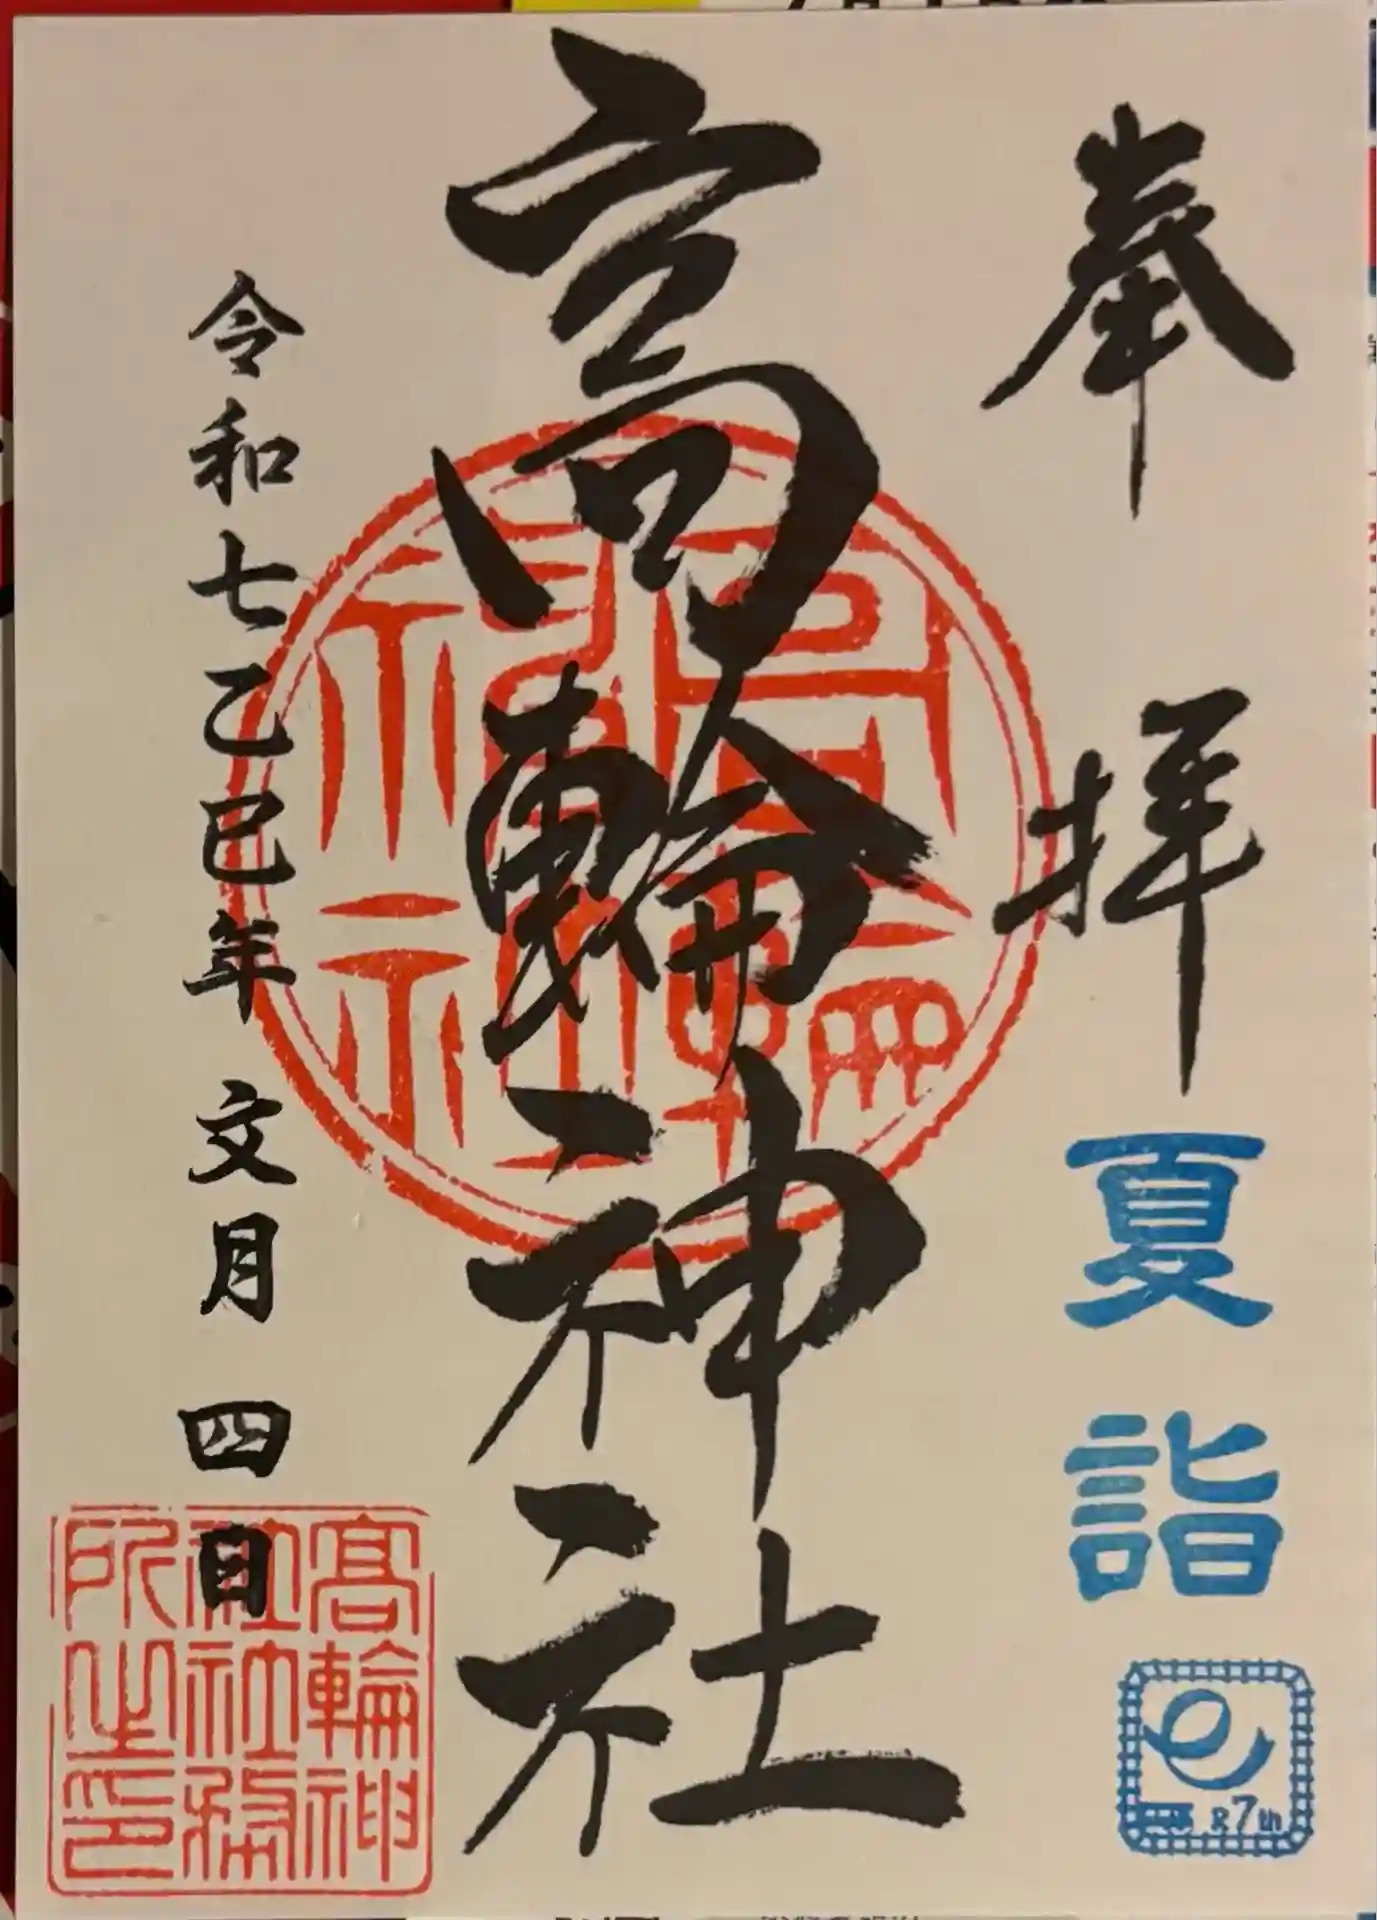 奉拝
夏詣
7th
高輪神社
高輪神
社社務
所之印
令和七乙巳年 文月 四日